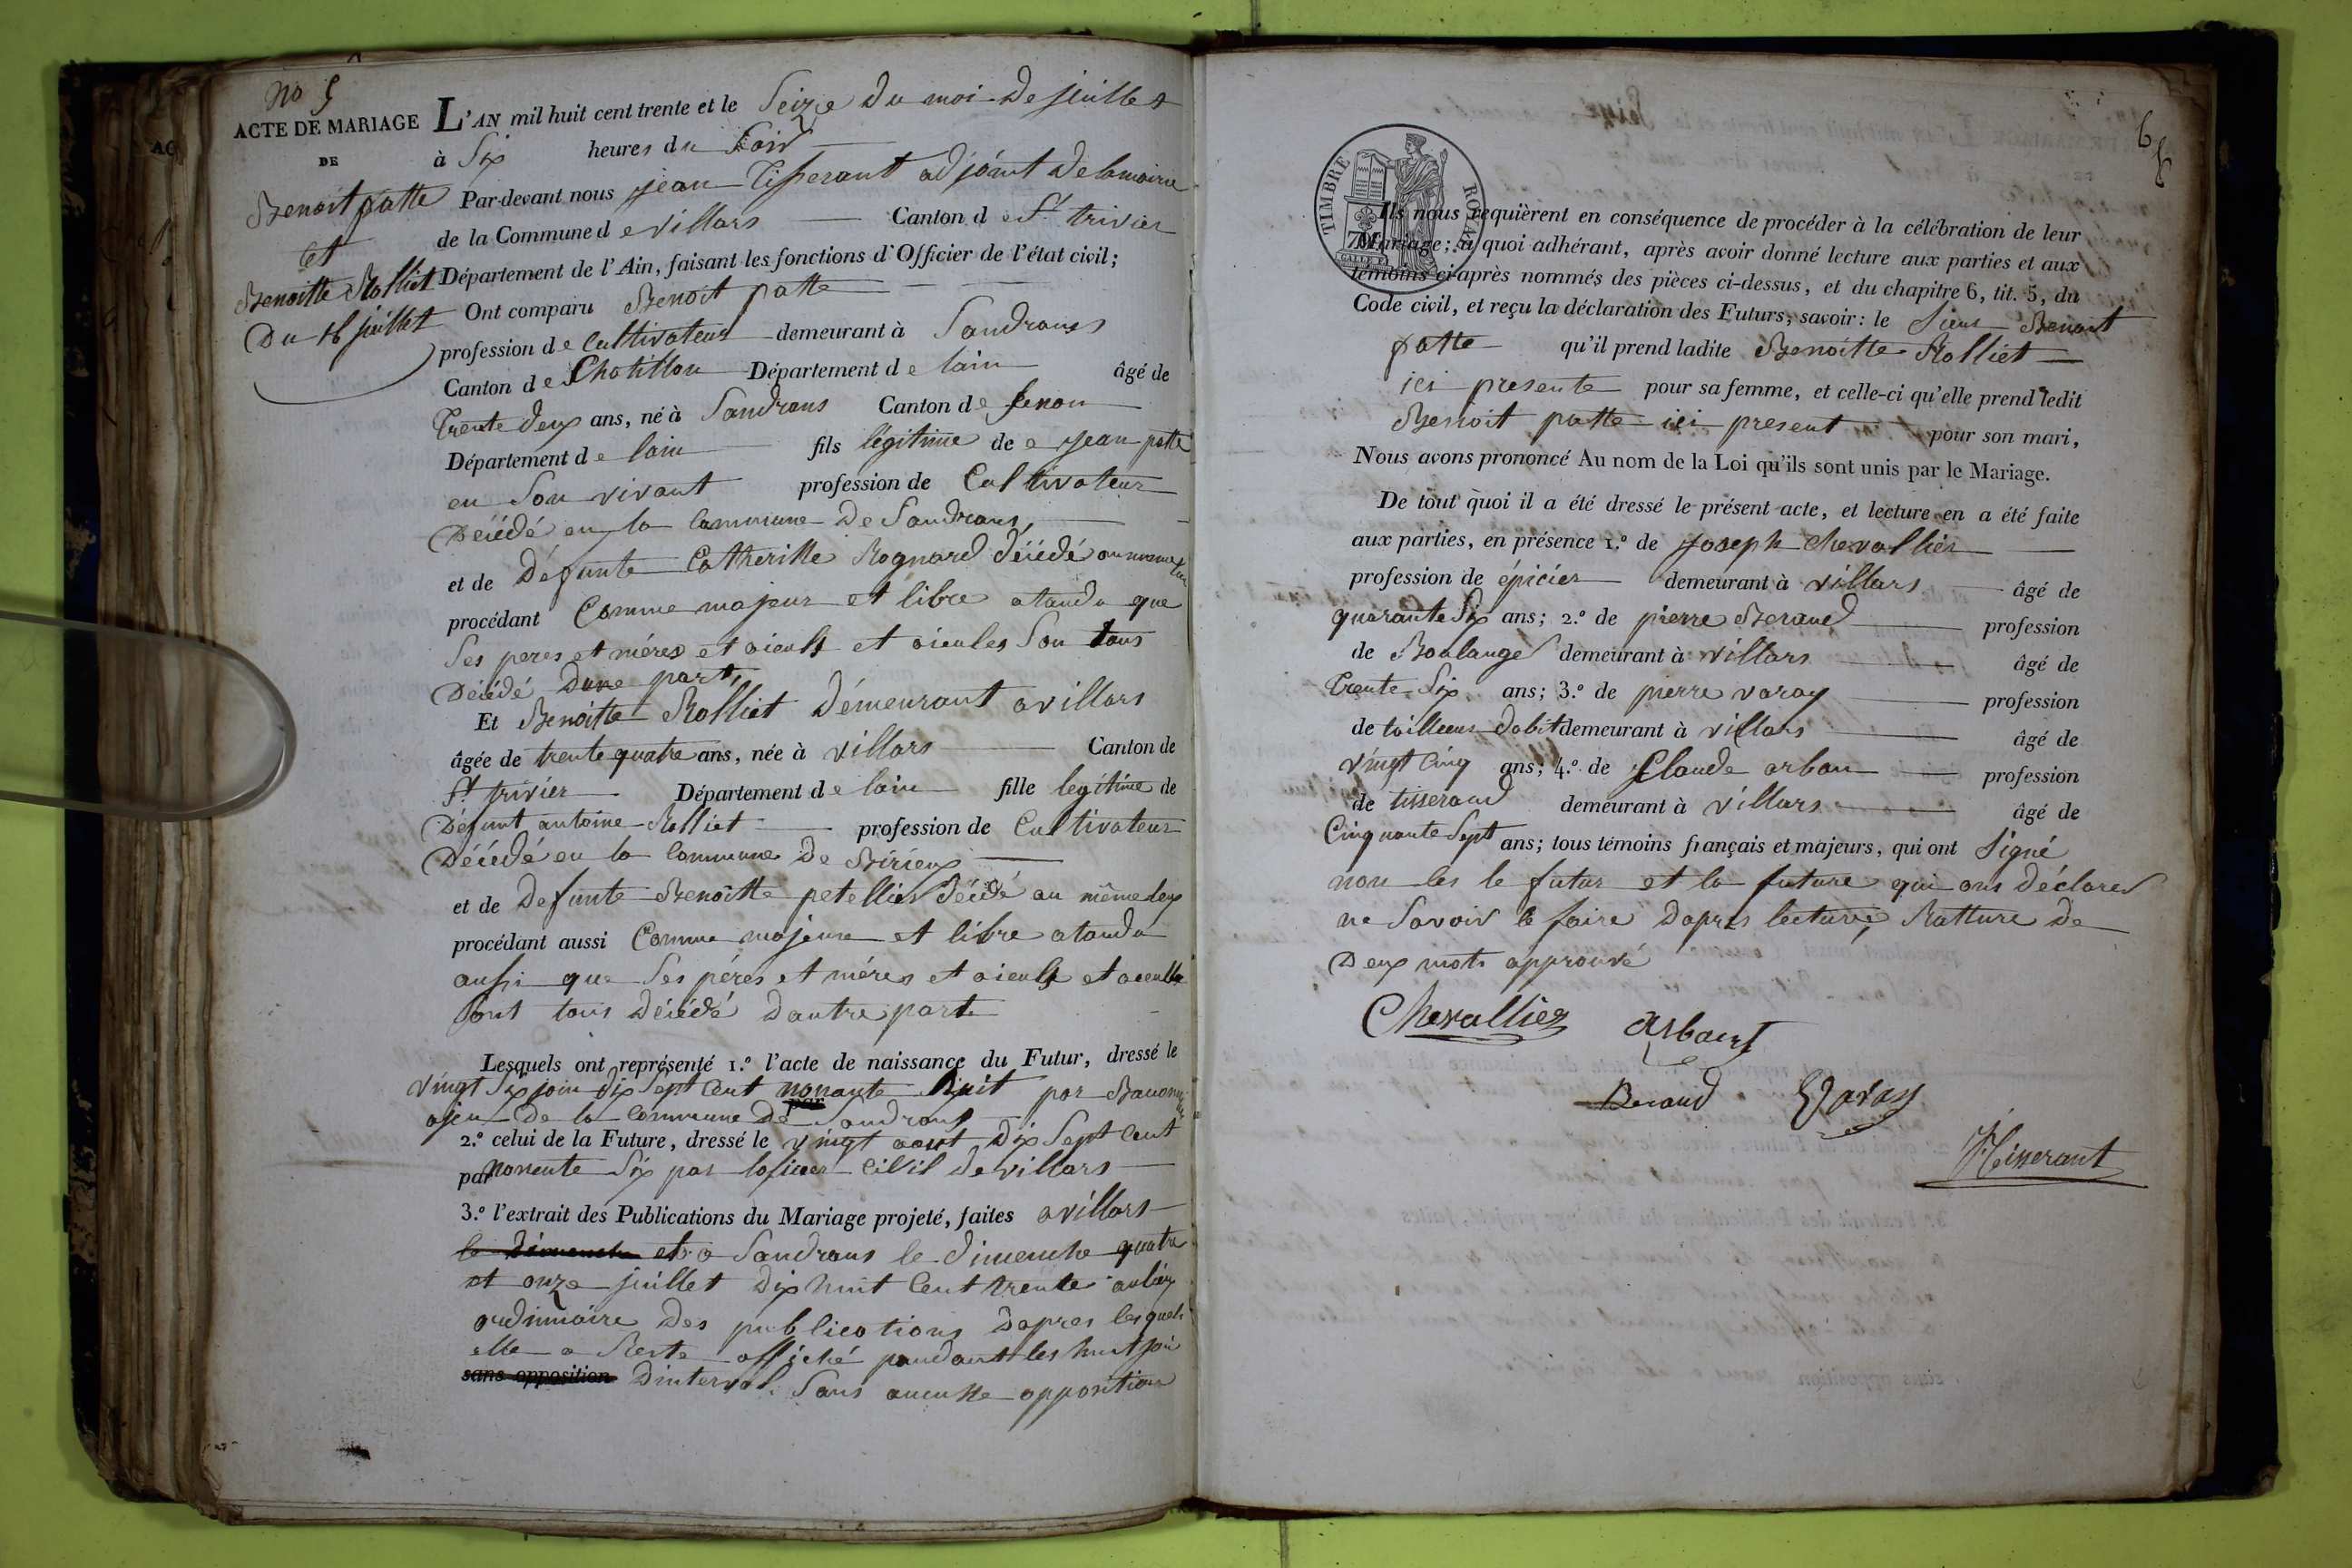 no 5
ACTE DE MARIAGE
DE
Benoit patte
et
Benoitte Rolliet
Du 16 juillet
L'AN mil huit cent trente et le Seize du moi de juillet
à Six heures du Soir
Par-devant nous jean Tisserant adjoint de la mairie
de la Commune de villars Canton de St trivier
Département de l'Ain, faisant les fonctions d'Officier de l'état civil;
Ont comparu Benoit patte
profession de Cultivateur demeurant à Sandrans
Canton de Chatillon Département de lain âgé de
Trente deux ans, né à Sandrans Canton de
Département de lain fils légitime de jean patte
en Son vivant profession de Cultivateur
Décédé en la Commune de Sandrans
et de Défunte Catherine Rognard décédé au meme
procédant Comme majeur et libre atandu que
Ses peres et méres et aieuls et aieules Son tous
Décédé dune part,
Et Benoitte Rolliet Démeurant a villars
âgée de trente quatre ans, née à villars Canton de
St trivier Département de lain fille legitime de
Defunt antoine Rolliet profession de Cultivateur
Décédé en la Commune de Birieux
et de Defunte Benoitte petellier décédé au même leux
procédant aussi Comme majeure et libre atandu
aussi que Ses péres et méres et aieuls et
Sont tous Décédé dautre part
Lesquels ont représenté 1.º l'acte de naissance du Futur, dressé le
vingt Six join dix Sept Cent nonante huit par
ajen de la Commune de Sandrans
2.º celui de la Future, dressé le vingt aout dix Sept Cent
par nonente Six par loficier Civil de villars
3.º l'extrait des Publications du Mariage projeté, faites a villars
le dimenche et a Sandrans le dimenche quatre
et onze juillet dix huit Cent trente au lieux
ordinnaire des publications dapres lesquels
elle a Reste affiché pandant les huit jour
sans opposition Dinterval Sans aucune opposition
6
TIMBRE ROYAL
Ils nous requièrent en conséquence de procéder à la célébration de leur
Mariage; à quoi adhérant, après avoir donné lecture aux parties et aux
témoins ci-après nommés des pièces ci-dessus, et du chapitre 6, tit. 5, du
Code civil, et reçu la déclaration des Futurs, savoir: le Sieur Benoit
patte qu'il prend ladite Benoitte Rolliet
ici presente pour sa femme, et celle-ci qu'elle prend ledit
Benoit patte ici present pour son mari,
Nous avons prononcé Au nom de la Loi qu'ils sont unis par le Mariage.
De tout quoi il a été dressé le présent acte, et lecture en a été faite
aux parties, en présence 1.º de joseph Chevallier
profession de épicier demeurant à villars âgé de
quarante Six ans; 2.º de pierre Beraud profession
de Boulanger demeurant à villars âgé de
Trente Six ans; 3.º de pierre varay profession
de tailleur dabit demeurant à villars âgé de
vingt Cinq ans; 4.º de Claude arban profession
de tisserand demeurant à villars âgé de
Cinquante Sept ans; tous témoins français et majeurs, qui ont Signé
non les le futur et la future qui ons déclarer
ne Savoir le faire dapres lecture, Ratture de
Deux mots approuvé
Chevallier
Arbant
Beraud
Varay
J Tisserant